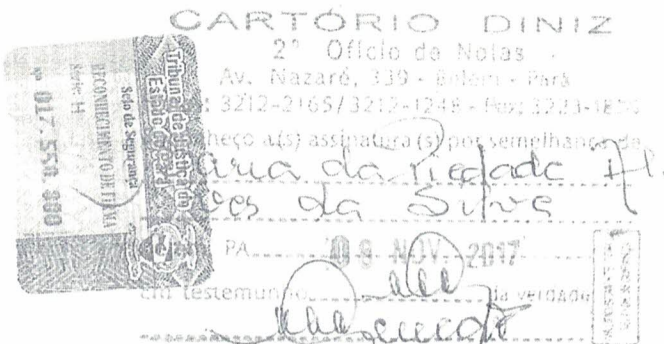 CARTÓRIO DINIZ
2º Ofício de Notas
Av. Nazaré, 339 - Belém - Pará
: 3212-2165/3212-1248 - Fax: 3223-
heço a(s) assinatura(s) por semelhança de
aria da Piedade Al
es da Silva
PA 09 NOV. 2017
em testemunho da verdade
Tribunal de Justiça do
Estado do Pará
Selo de Segurança
RECONHECIMENTO DE FIRMA
Série: H
Nº 017.550.